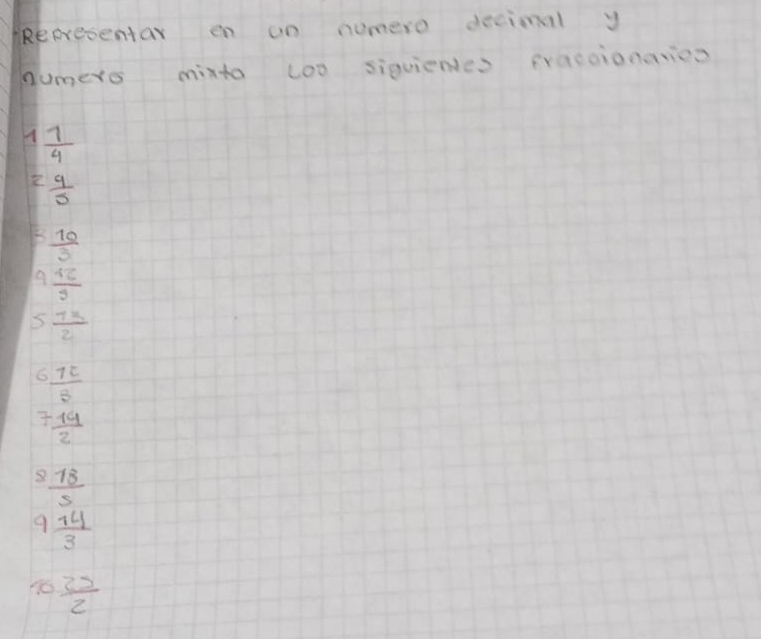 Representar en un numero decimal y
numero mixto Los siguientes fraccionarios
1 7/4
2 9/5
3 10/3
4 12/5
5 13/2
6 12/5
7 14/2
8 13/5
9 14/3
10 25/2